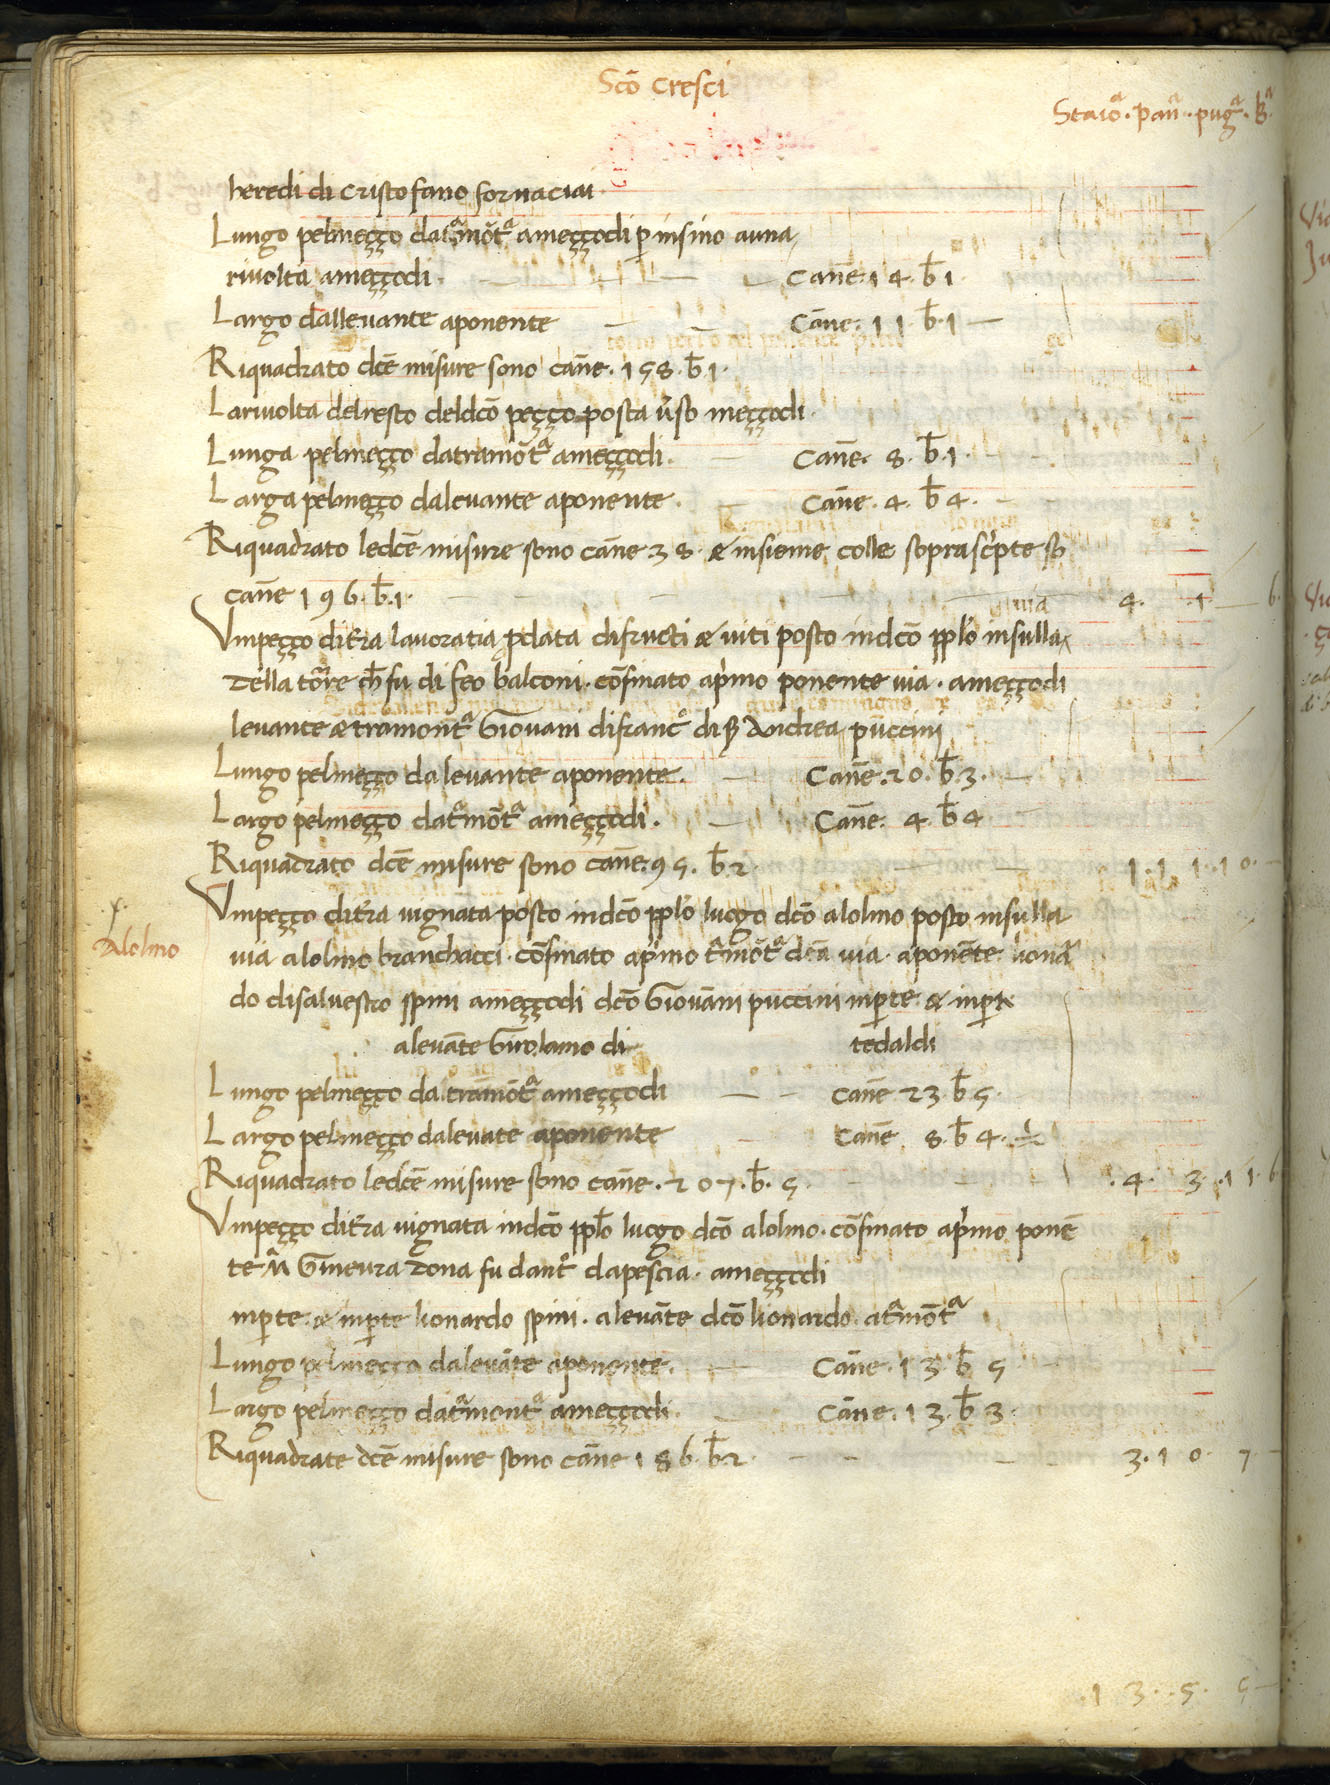 Scō Cresci
Staioᵃ · panᵃ · pugᵃ · bᵃ
heredi di Cristofano fornaciai ·
Lungo pelmeçço datᵃmōtᵃ ameççodi p̄ insino auna
rivolta ameççodi · — Cañe · 14 · b̄ 1 ·
Largo dallevante aponente — Cañe · 11 · b̄ · 1 —
Riquadrato dcē misure sono cañe · 158 · b̄ 1 ·
Larivolta delresto deldcō peçço posta ūso meççodi ·
Lunga pelmeçço datramōtᵃ ameççodi · — Cañe · 8 · b̄ · 1 ·
Larga pelmeçço dalevante aponente · — Cañe · 4 · b̄ 4 ·
Riquadrato ledcē misure sono cañe 38 · & insieme colle soprascr̄pte sō
cañe 196 · b̄ · 1 · — 4 · · 1 · — 6 ·
via
Vmpeçço dit̄ra lavoratia p̄data difructi & viti posto indcō pp̄lo insulla
della tōrre ch̄ fu di feo balconi · cōfinato ap̄mo ponente via · ameççodi
levante & tramontᵃ Giovani difrancº di ß Andrea puccini
Lungo pelmeçço dalevante aponente · — Cañe · 20 · b̄ 3 · —
Largo pelmeçço datᵃmōtᵃ ameççodi · — Cañe · 4 · b̄ 4
Riquadrato dcē misure sono cañe · 95 · b̄ · 2 · — 1 · 1 1 · 10 · —
Vmpeçço dit̄ra vignata posto indcō pp̄lo luogo dcō alolmo posto insulla
Alolmo
via alolmo branchacci · cōfinato ap̄mo tᵃmōtᵃ dcā via · aponēte lionā
do disalvestro spini ameççodi dcō Giovāni puccini inp̄te & inp̄te
alevāte Girolamo di tedaldi
Lungo pelmeçço da tramōtᵃ ameççodi — Cañe 23 b̄ 5 ·
Largo pelmeçço dalevāte aponente — Cañe 8 · b̄ 4 · ½
Riquadrato ledcē misure sono cañe · 207 · b̄ · 5 — · 4 · 3 · 11 · 6
Vmpeçço dit̄ra vignata indcō pp̄lo luogo dcō alolmo · cōfinato ap̄mo ponē
te Gineura dona fu dantº dapescia · ameççodi
inp̄te & inp̄te lionardo spini · alevāte dcō lionardo atᵃmōtᵃ
Lungo pelmeçço dalevāte aponente · — Cañe · 13 · b̄ 5
Largo pelmeçço datᵃmontᵃ ameççodi · — Cañe · 13 · b̄ 3 ·
Riquadrate dcē misure sono cañe 186 · b̄ 2 · — 3 · 10 · 7 —
· 1 3 · · 5 · 5 —